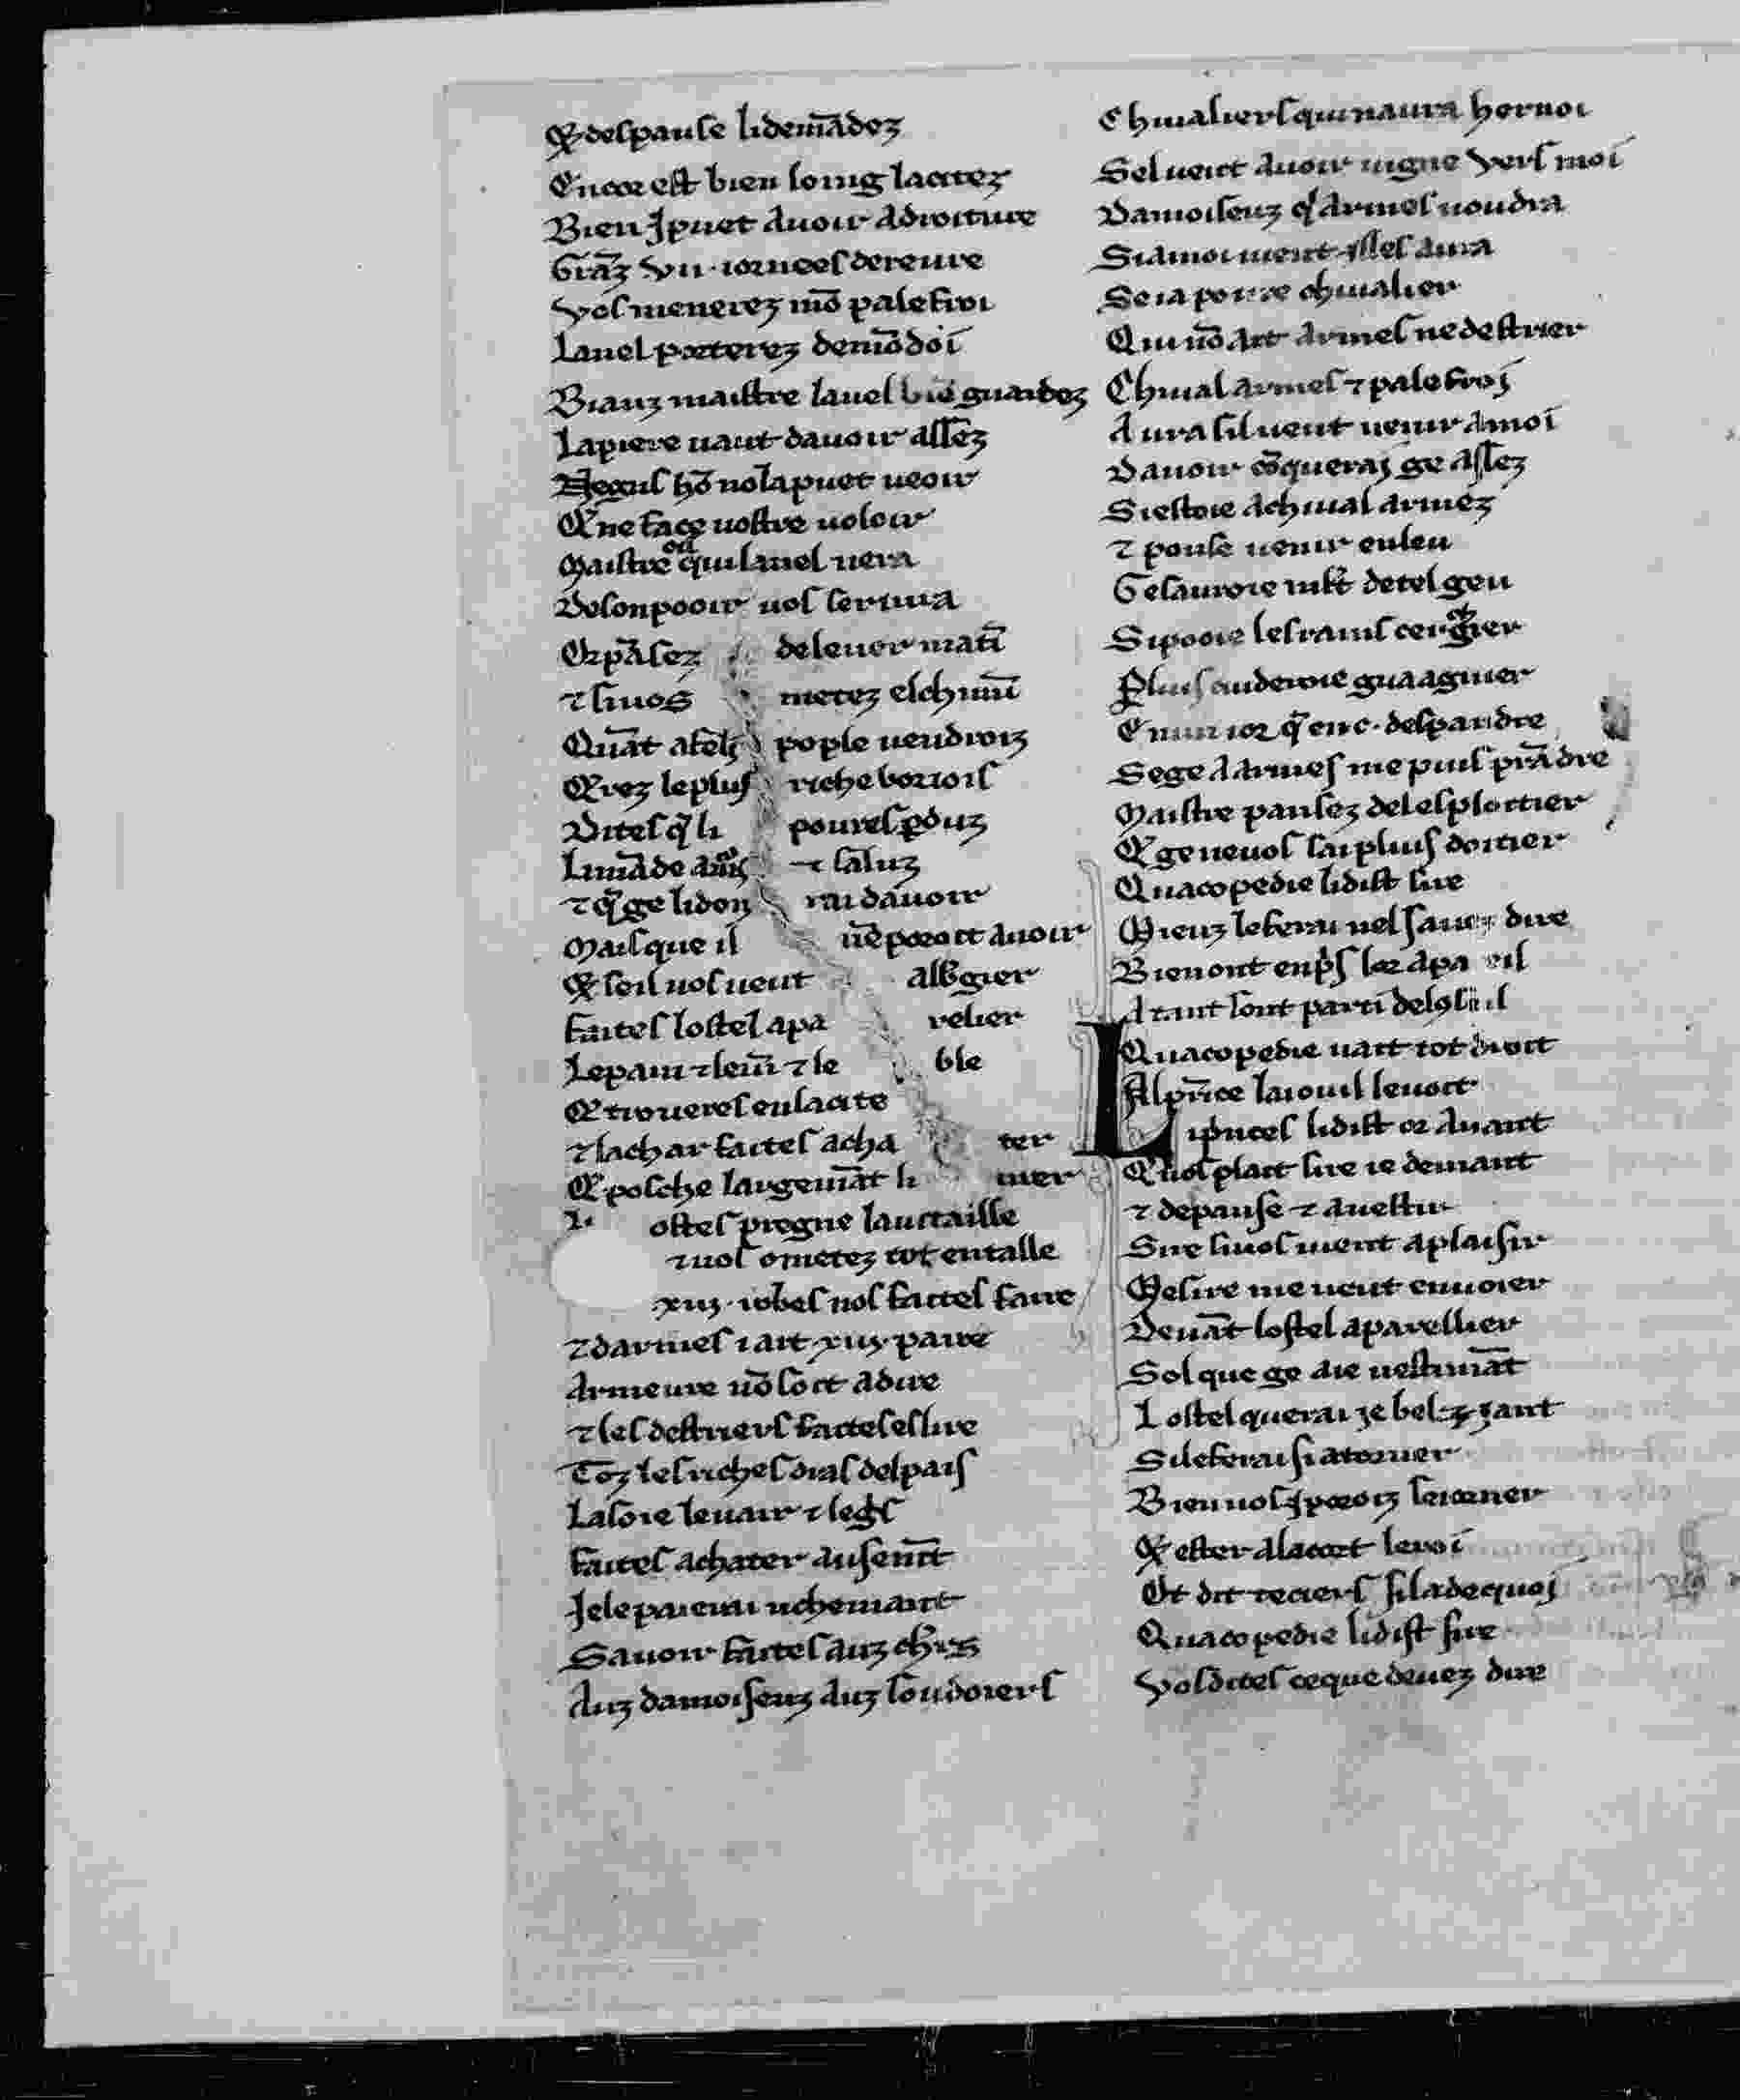 Q̃ despanse li demãdez
Encor est bien loing la citez
Bien i puet avoir a droiture
Grãz vii iornees de reure
Vos menerez mõ palefroi
L anel porterez de mõ doi
Biauz maistre l anel biẽ guardez
La piere vaut d avoir assez
Negus hõ nõ la puet veoir
Q̃ ne face vostre voloir
Maistre qui l anel vera
De son pooir vos servira
Or pãsez de lever matĩ
⁊ si vos metez el chimĩ
Quãt a tebes pople vendroiz
Q̃rez le plus riche borzois
Dites q̃ li povres perduz
Li mãde amis ⁊ saluz
⁊ q̃ ge li don rai d avoir
Mais que il nẽ poroit avoir
Q̃ se il vos veut alb̃gier
Faites l ostel apa relier
Le pain ⁊ le uĩ ⁊ le ble
Q̃ troveres en la cite
⁊ la char faites acha ter
Q̃ po sche largemãt li uer
L ostes pregne la vitaille
⁊ vos ometez tot en taille
xiiij robes nos faites faire
⁊ d armes i ait xiiij paire
Armeure nõ soit a dire
⁊ les destriers faites eslire
Toz les riches dras del pais
La soie le vair ⁊ le gris
Faites achater ausemẽt
Je le paierai richemant
Savoir faites auz chrs
Auz damoiseuz auz soudoiers
Chivaliers qui n aura hernoi
Sel veut avoir vigne vers moi
Damoiseuz q̃ armes voudra
Si a moi vient sles aura
Se ia povre chivalier
Qui nõ ait armes ne destrier
Chival armes ⁊ palefroi
Aura s il veut venir a moi
D avoir cõquerai ge assez
Si estoie a chival armez
⁊ pouse venir en leu
Ge sauroie mlt de tel geu
Si pooie les rains cerchier
Plus cuideroie guaagnier
En un ior q̃ en c despandre
Se ge a armes me puis prãdre
Maistre pansez de l esploitier
Q̃ ge ne vos sai plus doitier
Quacopedie li dist sire
Mieuz le ferai nel savez dire
Bien ont enpris lor apa reil
Atant sont parti del cõsuil
Quacopedie vait tot droit
Al price la io uil levoit
Li princes li dist or avant
Q̃ vos plait sire ie demant
⁊ depanse ⁊ a vestir
Sire si vos vient a plaisir
Mesire me veut envoier
Devãt l ostel aparellier
Sol que ge aie vestimãt
L ostel querai ge bel ⁊ gant
Si le ferai si atorner
Bien vos i poroiz seiorner
Q̃ ester a la cort le roi
Et dit teciers si l a de quoi
Quacopedie li dist sire
Vos dites ce que devez dire